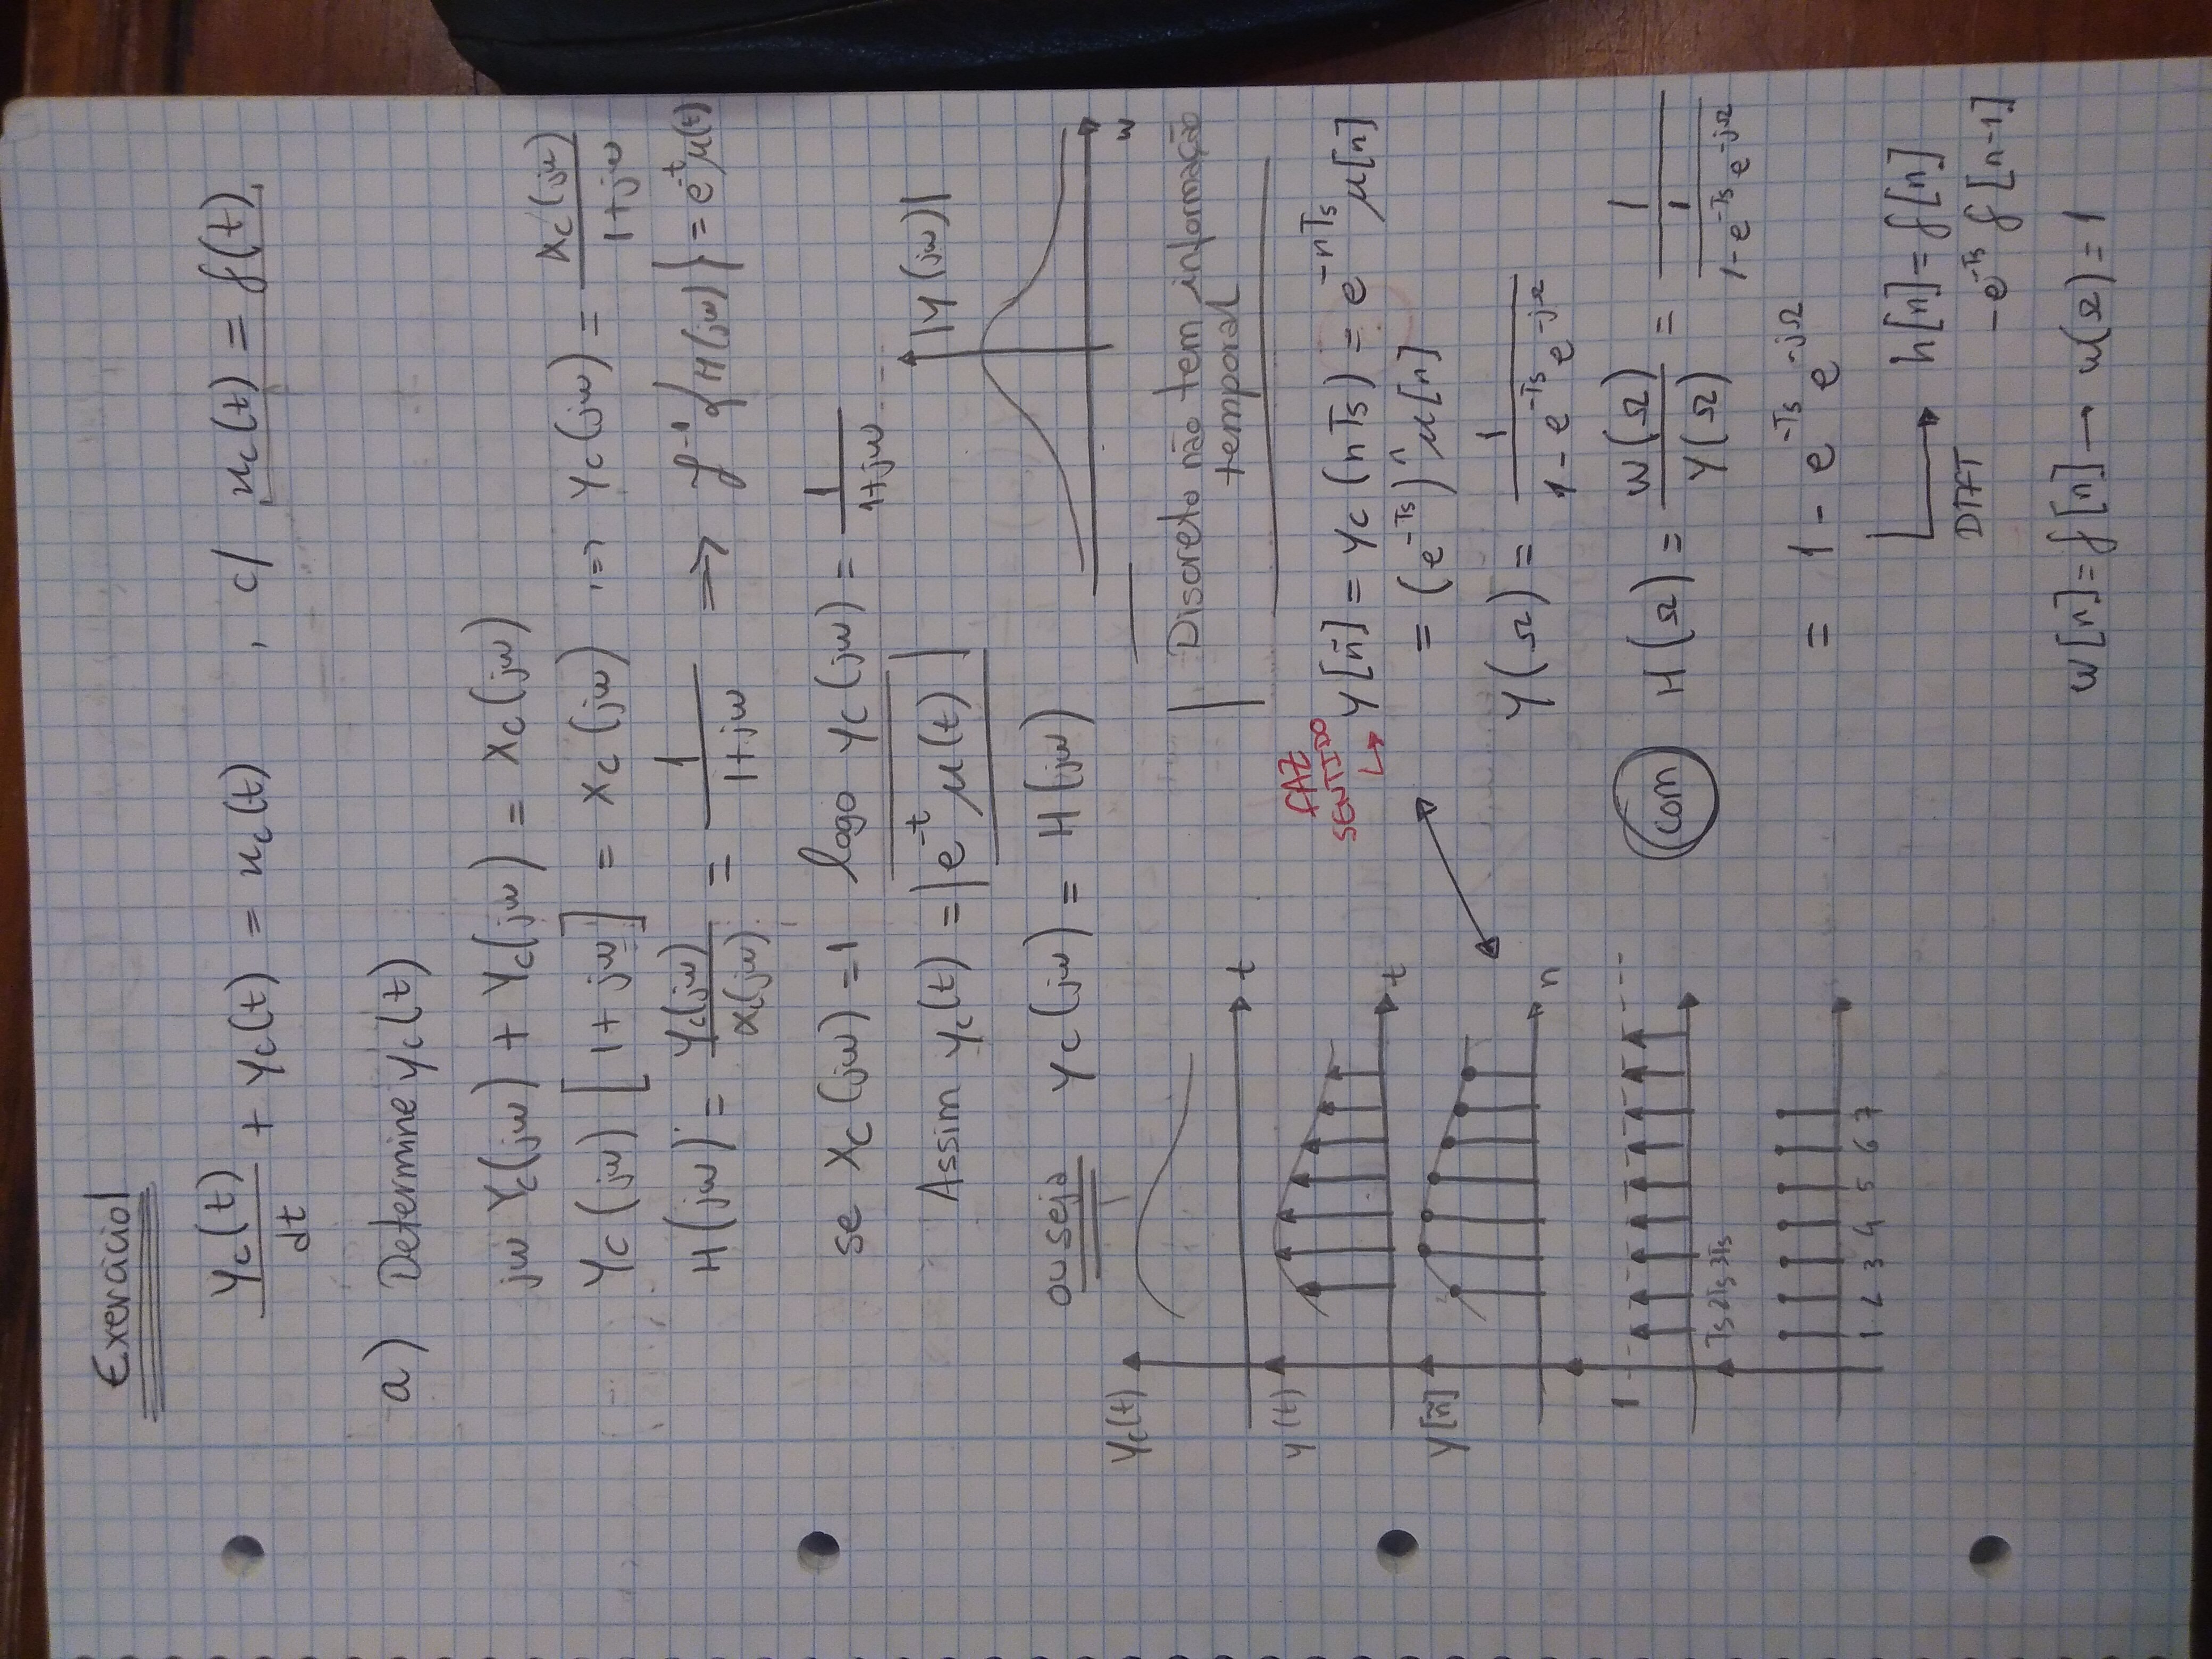 Exercício 1
yc(t)/dt + yc(t) = xc(t) , c/ xc(t) = δ(t)
a) Determine yc(t)
jω Yc(jω) + Yc(jω) = Xc(jω)
Yc(jω) [1 + jω] = Xc(jω) ⇒ Yc(jω) = Xc(jω)/(1+jω)
H(jω) = Yc(jω)/Xc(jω) = 1/(1+jω) ⇒ F⁻¹{H(jω)} = e^(-t) μ(t)
se Xc(jω) = 1 logo Yc(jω) = 1/(1+jω)
Assim yc(t) = |e^(-t) μ(t)|
|Y(jω)|
ω
ou seja Yc(jω) = H(jω)
yc(t)
t
Discreto não tem informação
temporal
y(t)
t
FAZ
SENTIDO
↳ y[n] = yc(nTs) = e^(-nTs) μ[n]
= (e^(-Ts))^n μ[n]
y[n]
n
Y(Ω) = 1/(1 - e^(-Ts) e^(-jΩ))
1
Ts 2Ts 3Ts
com H(Ω) = W(Ω)/Y(Ω) = 1/(1/(1 - e^(-Ts) e^(-jΩ)))
= 1 - e^(-Ts) e^(-jΩ)
1 2 3 4 5 6 7
DTFT → h[n] = δ[n]
- e^(-Ts) δ[n-1]
w[n] = δ[n] → W(Ω) = 1